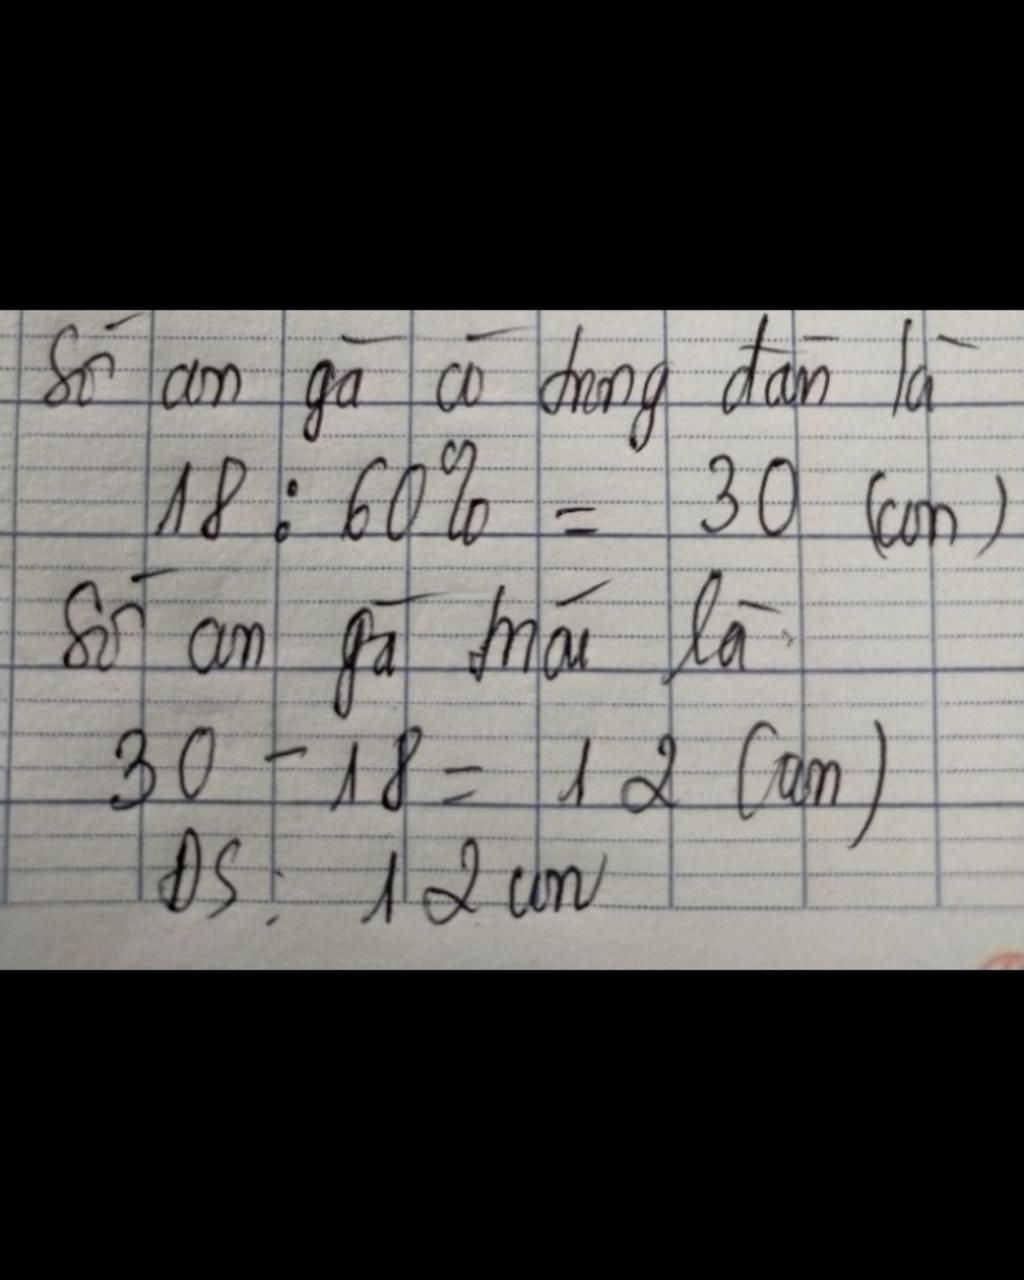 Số con gà có trong đàn là
18 : 60% = 30 (con)
Số con gà mái là
30 - 18 = 12 (con)
ĐS: 12 con